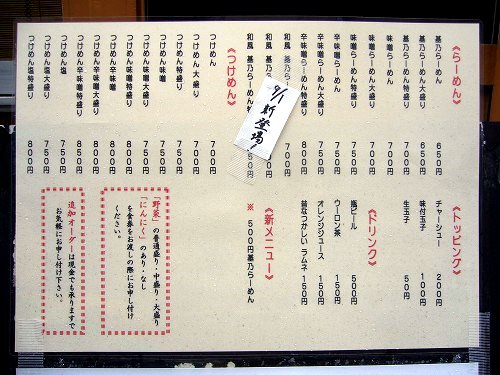 《らーめん》
基乃らーめん 650円
基乃らーめん大盛り 650円
基乃らーめん特盛り 700円
味噌らーめん 700円
味噌らーめん大盛り 700円
味噌らーめん特盛り 750円
辛味噌らーめん 750円
辛味噌らーめん大盛り 750円
辛味噌らーめん特盛り 800円
和風 基乃らーめん 700円
和風 基乃らー
和風 基乃 50円
9/1 新登場!
《つけめん》
つけめん 700円
つけめん大盛り 700円
つけめん特盛り 750円
つけめん味噌 750円
つけめん味噌大盛り 750円
つけめん味噌特盛り 800円
つけめん辛味噌 800円
つけめん辛味噌大盛り 800円
つけめん辛味噌特盛り 850円
つけめん塩 750円
つけめん塩大盛り 750円
つけめん塩特盛り 800円
《トッピング》
チャーシュー 200円
味付玉子 100円
生玉子 50円
《ドリンク》
瓶ビール 500円
ウーロン茶 150円
オレンジジュース 150円
昔なつかしい ラムネ 150円
《新メニュー》
※ 500円基乃らーめん
「野菜」の普通盛り・中盛り・大盛り
「にんにく」のあり・なし
を食券をお渡しの際にお申し付け
ください。
追加オーダーは現金でも承りますで
お気軽にお申し付け下さい。